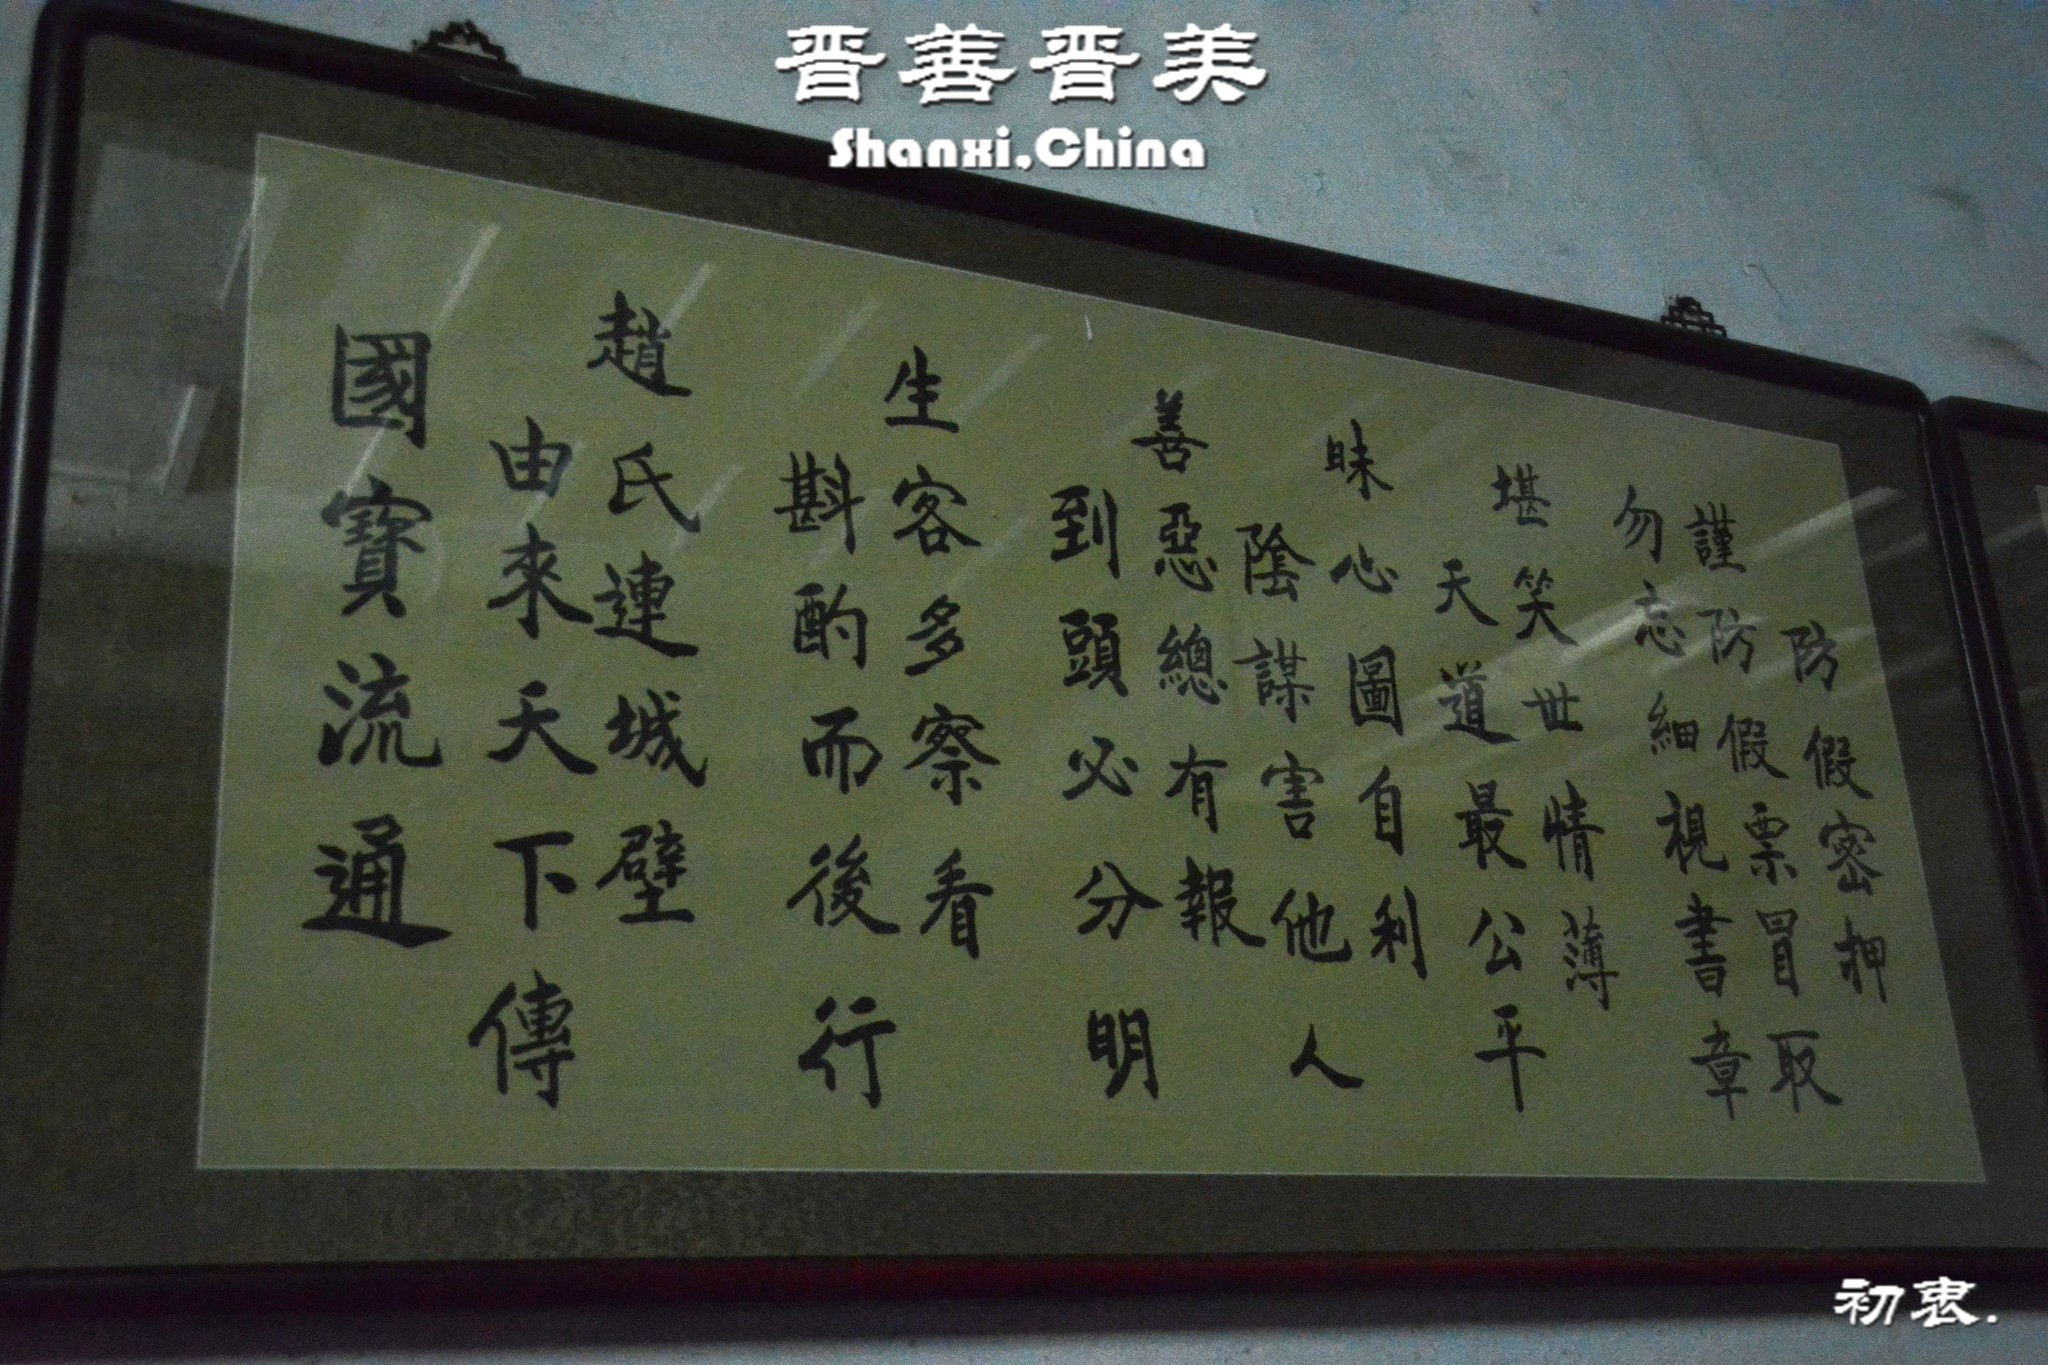 晋善晋美
Shanxi,China
防假密押
謹防假票冒取
勿忘細視書章
堪笑世情薄
天道最公平
昧心圖自利
陰謀害他人
善惡總有報
到頭必分明
生客多察看
斟酌而後行
趙氏連城壁
由來天下傳
國寶流通
初衷.